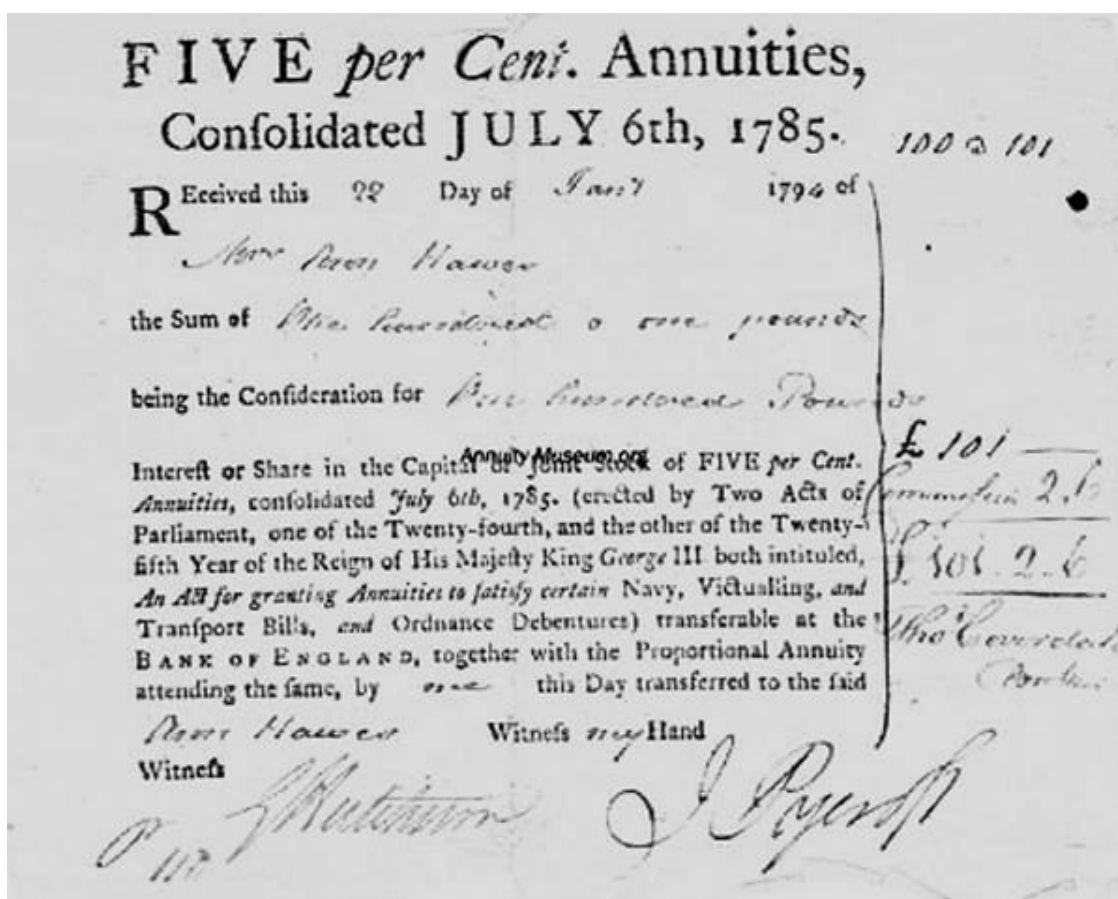 FIVE per Cent. Annuities,
Conſolidated JULY 6th, 1785.
100 a 101
REceived this 22 Day of Jany 1794 of
Mrs Ann Hawes
the Sum of One hundred & one pounds
being the Conſideration for One hundred Pounds
Annuity Museum.org
Intereſt or Share in the Capital or Joint Stock of FIVE per Cent.
Annuities, conſolidated July 6th, 1785. (erected by Two Acts of
Parliament, one of the Twenty-fourth, and the other of the Twenty-
fifth Year of the Reign of His Majeſty King George III both intituled,
An Act for granting Annuities to ſatisfy certain Navy, Victualling, and
Tranſport Bills, and Ordnance Debentures) transferable at the
BANK OF ENGLAND, together with the Proportional Annuity
attending the ſame, by me this Day transferred to the ſaid
Ann Hawes Witneſs my Hand
Witneſs
£ 101
2.6
£ 101.2.6
Thos Coverdale